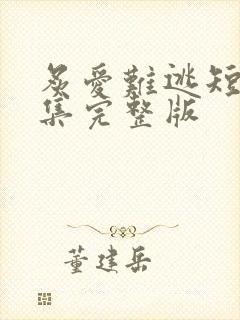 炙愛難逃短
集完整版
董建岳